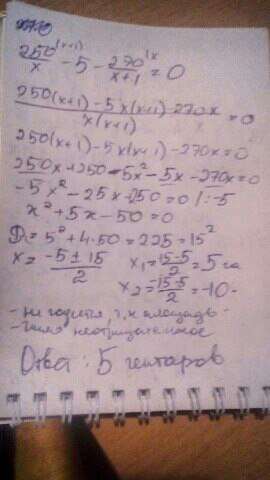 250/x^(x+1) - 5 - 270/(x+1)^(x = 0
(250(x+1) - 5x(x+1) - 270x)/(x(x+1)) = 0
250(x+1) - 5x(x+1) - 270x = 0
250x + 250 - 5x² - 5x - 270x = 0
-5x² - 25x + 250 = 0 /: -5
x² + 5x - 50 = 0
D = 5² + 4·50 = 225 = 15²
x = (-5 ± 15)/2 x₁ = (15-5)/2 = 5 га
x₂ = (-15-5)/2 = -10 -
- не годится, т.к площадь -
- число неотрицательное
Ответ: 5 гектаров